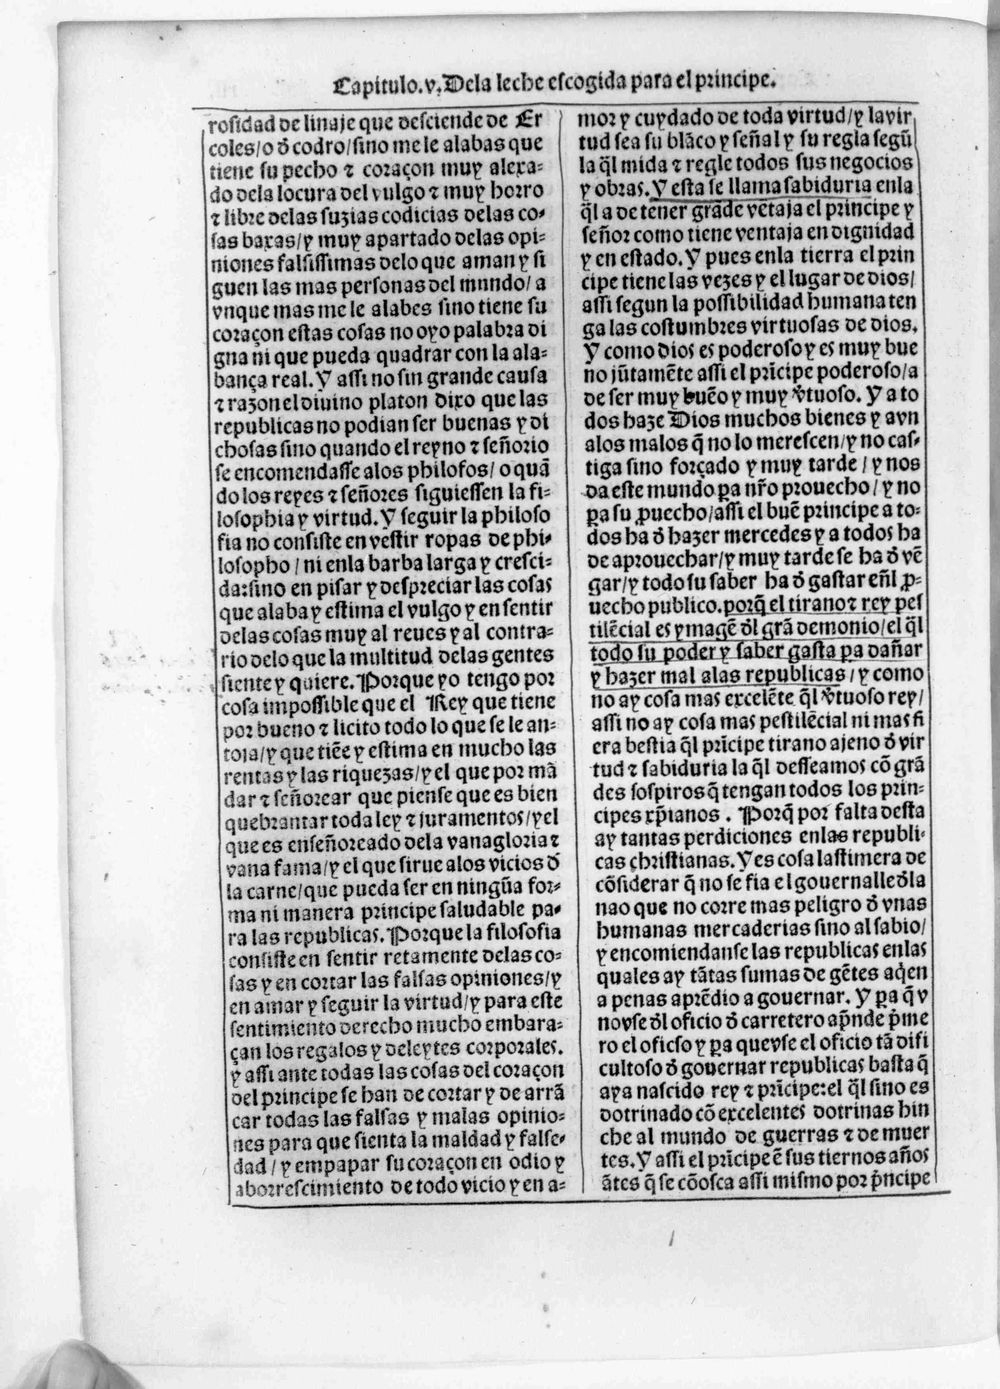 Capitulo.v.Dela leche escogida para el principe.
rosidad de linaje que desciende de Er
coles/o d̓ codro/sino me le alabas que
tiene su pecho ⁊ coraçon muy alexa-
do dela locura del vulgo ⁊ muy horro
⁊ libre delas suzias codicias delas co-
sas baxas/y muy apartado delas opi-
niones falsissimas delo que aman y si
guen las mas personas del mundo/a
vnque mas me le alabes sino tiene su
coraçon estas cosas no oyo palabra di
gna ni que pueda quadrar con la ala-
bança real. Y assi no sin grande causa
⁊ razon el diuino platon dixo que las
republicas no podian ser buenas y di
chosas sino quando el reyno ⁊ señorio
se encomendasse alos philosos/o quã
do los reyes ⁊ señores siguiessen la fi-
losophia y virtud. Y seguir la philoso
fia no consiste en vestir ropas de phi-
losopho/ni enla barba larga y cresci-
da:sino en pisar y despreciar las cosas
que alaba y estima el vulgo y en sentir
delas cosas muy al reues y al contra-
rio delo que la multitud delas gentes
siente y quiere. Porque yo tengo por
cosa impossible que el Rey que tiene
por bueno ⁊ licito todo lo que se le an-
toja/y que tiẽe y estima en mucho las
rentas y las riquezas/y el que por mã
dar ⁊ señorear que piense que es bien
quebrantar toda ley ⁊ juramentos/y el
que es enseñoreado dela vanagloria ⁊
vana fama/y el que sirue alos vicios d̓
la carne/que pueda ser en ningũa for-
ma ni manera principe saludable pa-
ra las republicas. Porque la filosofia
consiste en sentir retamente delas co-
sas y en cortar las falsas opiniones/y
en amar y seguir la virtud/y para este
sentimiento derecho mucho embara-
çan los regalos y deleytes corporales.
y assi ante todas las cosas del coraçon
del principe se han de cortar y de arrã
car todas las falsas y malas opinio-
nes para que sienta la maldad y false-
dad/y empapar su coraçon en odio y
aborrescimiento de todo vicio y en a-
mor y cuydado de toda virtud/y la vir
tud sea su blãco y señal y su regla segũ
la q̃l mida ⁊ regle todos sus negocios
y obras. Y esta se llama sabiduria enla
q̃l a de tener grãde vẽtaja el principe y
señor como tiene ventaja en dignidad
y en estado. Y pues enla tierra el prin
cipe tiene las vezes y el lugar de dios/
assi segun la possibilidad humana ten
ga las costumbres virtuosas de dios.
Y como dios es poderoso y es muy bue
no jũtamẽte assi el prĩcipe poderoso/a
de ser muy buẽo y muy v̓tuoso. Y a to
dos haze Dios muchos bienes y avn
alos malos q̃ no lo merescen/y no cas-
tiga sino forçado y muy tarde/y nos
da este mundo ꝑa nr̃o prouecho/y no
ꝑa su ꝓuecho/assi el buẽ principe a to-
dos ha d̓ hazer mercedes y a todos ha
de aprouechar/y muy tarde se ha d̓ vẽ
gar/y todo su saber ha d̓ gastar eñl ꝓ-
uecho publico.porq̃ el tirano ⁊ rey pes
tilẽcial es ymagẽ d̓l grã demonio/el q̃l
todo su poder y saber gasta ꝑa dañar
y hazer mal alas republicas/y como
no ay cosa mas excelẽte q̃l v̓tuoso rey/
assi no ay cosa mas pestilẽcial ni mas fi
era bestia q̃l prĩcipe tirano ajeno d̓ vir
tud ⁊ sabiduria la q̃l desseamos cõ grã
des sospiros q̃ tengan todos los prin-
cipes xp̃ianos. Porq̃ por falta desta
ay tantas perdiciones enlas republi-
cas christianas. Y es cosa lastimera de
cõsiderar q̃ no se fia el gouernalle d̓la
nao que no corre mas peligro d̓ vnas
humanas mercaderias sino al sabio/
y encomiendanse las republicas enlas
quales ay tãtas sumas de gẽtes a q̃en
a penas aprẽdio a gouernar. Y ꝑa q̃ v
no vse d̓l oficio d̓ carretero ap̃nde p̓me
ro el oficio y ꝑa que vse el oficio tã difi
cultoso d̓ gouernar republicas basta q̃
aya nascido rey ⁊ prĩcipe:el q̃l sino es
dotrinado cõ excelentes dotrinas hin
che al mundo de guerras ⁊ de muer
tes. Y assi el prĩcipe ẽ sus tiernos años
ãtes q̃ se cõosca assi mismo por p̓ncipe